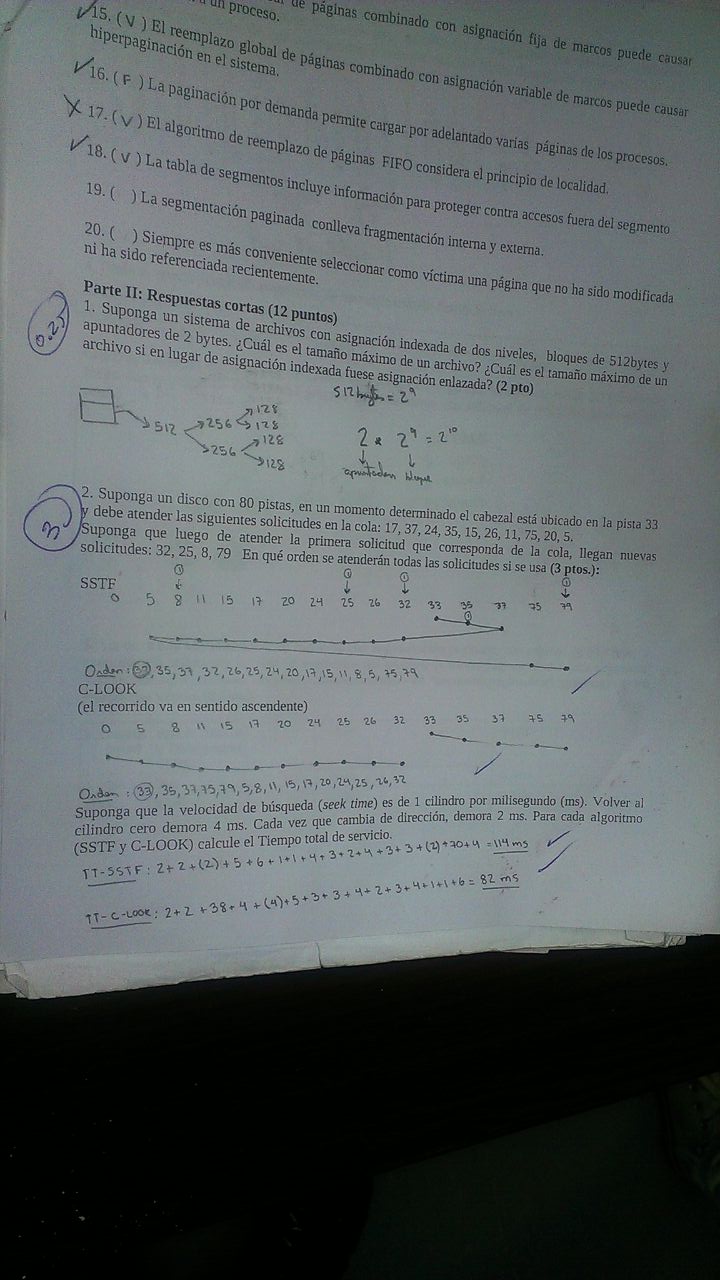 de páginas combinado con asignación fija de marcos puede causar
un proceso.
15. ( V ) El reemplazo global de páginas combinado con asignación variable de marcos puede causar
hiperpaginación en el sistema.
16. ( F ) La paginación por demanda permite cargar por adelantado varias páginas de los procesos.
17. ( V ) El algoritmo de reemplazo de páginas FIFO considera el principio de localidad.
18. ( V ) La tabla de segmentos incluye información para proteger contra accesos fuera del segmento
19. ( ) La segmentación paginada conlleva fragmentación interna y externa.
20. ( ) Siempre es más conveniente seleccionar como víctima una página que no ha sido modificada
ni ha sido referenciada recientemente.
Parte II: Respuestas cortas (12 puntos)
0.25
1. Suponga un sistema de archivos con asignación indexada de dos niveles, bloques de 512bytes y
apuntadores de 2 bytes. ¿Cuál es el tamaño máximo de un archivo? ¿Cuál es el tamaño máximo de un
archivo si en lugar de asignación indexada fuese asignación enlazada? (2 pto)
512 bytes = 2⁹
512 256 128 128
256 128 128
2 * 2⁹ = 2¹⁰
apuntadores bloque
3
2. Suponga un disco con 80 pistas, en un momento determinado el cabezal está ubicado en la pista 33
y debe atender las siguientes solicitudes en la cola: 17, 37, 24, 35, 15, 26, 11, 75, 20, 5.
Suponga que luego de atender la primera solicitud que corresponda de la cola, llegan nuevas
solicitudes: 32, 25, 8, 79 En qué orden se atenderán todas las solicitudes si se usa (3 ptos.):
SSTF
0 5 8 11 15 17 20 24 25 26 32 33 35 37 75 79
Orden: 33, 35, 37, 32, 26, 25, 24, 20, 17, 15, 11, 8, 5, 75, 79
C-LOOK
(el recorrido va en sentido ascendente)
0 5 8 11 15 17 20 24 25 26 32 33 35 37 75 79
Orden: 33, 35, 37, 75, 79, 5, 8, 11, 15, 17, 20, 24, 25, 26, 32
Suponga que la velocidad de búsqueda (seek time) es de 1 cilindro por milisegundo (ms). Volver al
cilindro cero demora 4 ms. Cada vez que cambia de dirección, demora 2 ms. Para cada algoritmo
(SSTF y C-LOOK) calcule el Tiempo total de servicio.
TT-SSTF: 2+2+(2)+5+6+1+1+4+3+2+4+3+3+(2)+70+4 = 114 ms
TT-C-LOOK: 2+2+38+4+(4)+5+3+3+4+2+3+4+1+1+6 = 82 ms